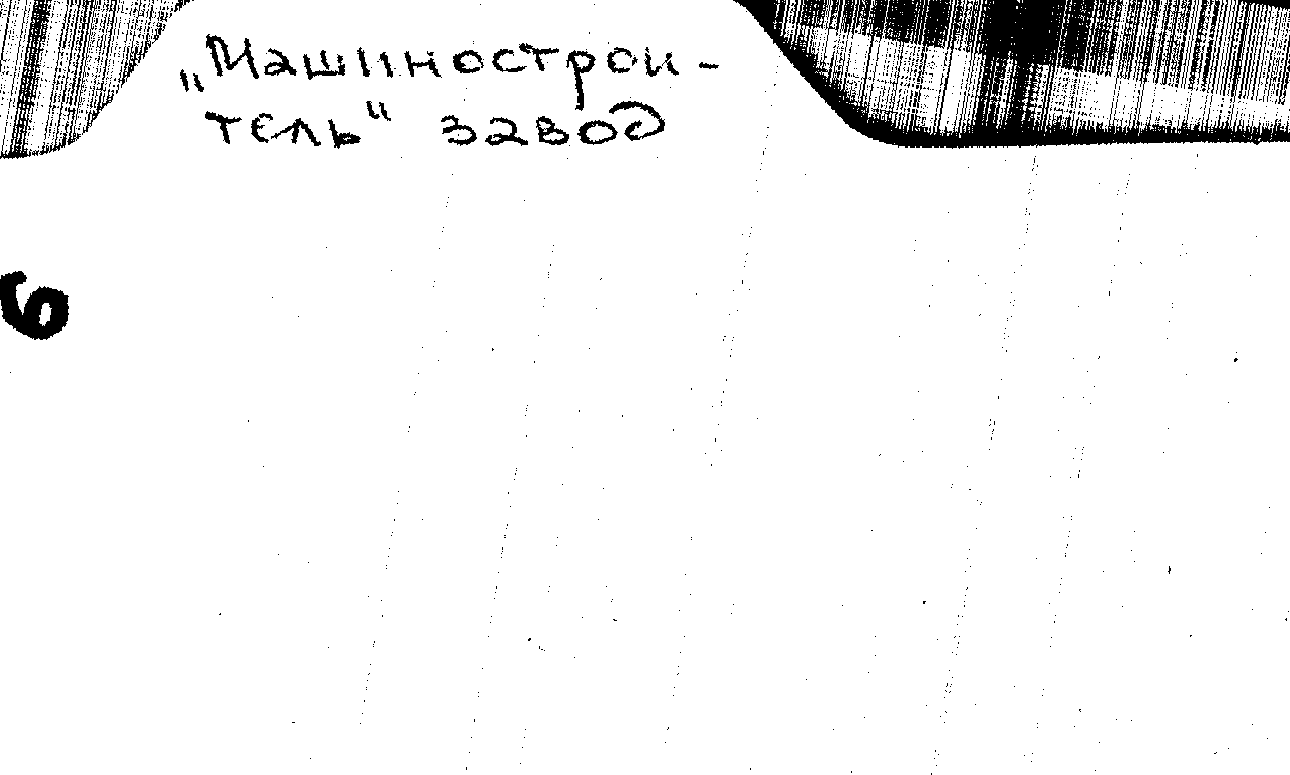 „Машинострои-
тель" завод
6